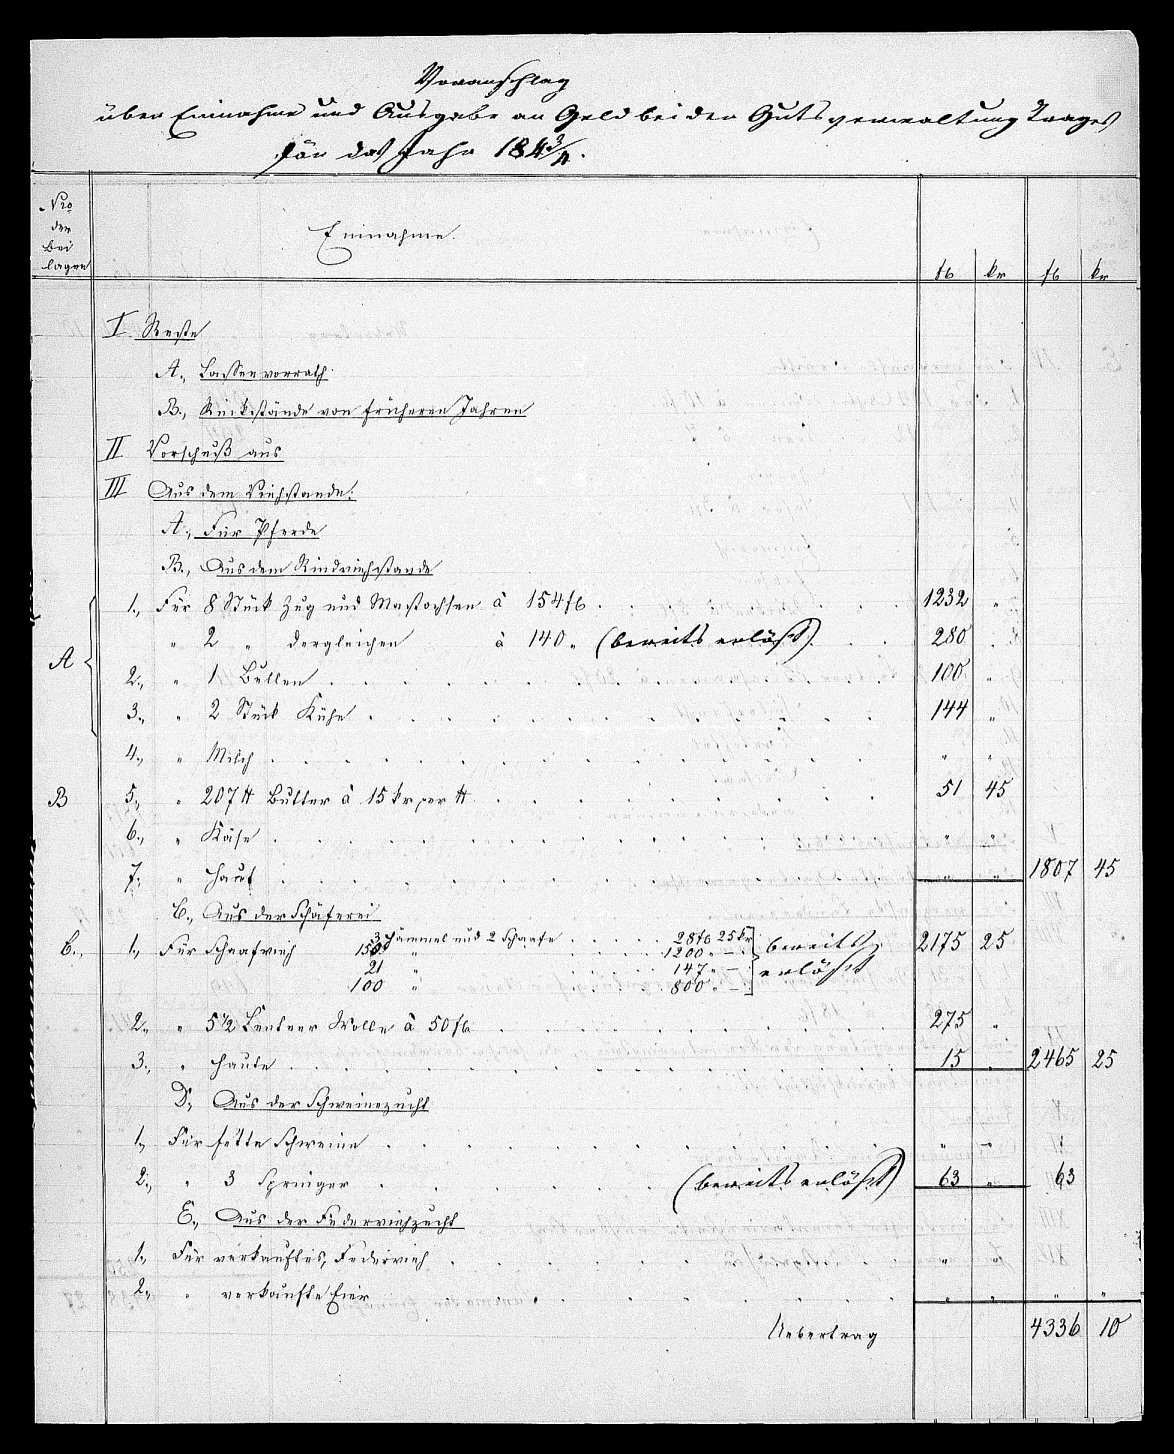 Voranschlag
über Einnahme und Ausgabe an Geld bei der Gutsverwaltung Trages
für das Jahr 1843/4.
Nro der Bei lagen
Einnahme.
fl kr fl kr
I Reste
A., Cassenvorrath
B., Rückstände von früheren Jahren
II Vorschuß aus
III Aus dem Viehstande.
A., Für Pferde
B., Aus dem Rindviehstande
1., Für 8 Stück Zug und Mastochsen à 154 fl . . 1232 "
A " 2 " dergleichen à 140 " (bereits erlößt) . . 280 "
2., " 1 Bullen . . 100 "
3., " 2 Stück Kühe . . 144 "
4., " Milch . . " "
B 5., " 207 ℔ Butter à 15 kr per ℔ . . 51 45
6., " Käse . . " "
7., " Häute . . " " 1807 45
C., Aus der Schäferei
C., 1., Für Schaafvieh 3 Hämmel und 2 Schaafe . . 28 fl 25 kr bereits erlößt 2175 25
150 " . . 1200 " –
21 " . . 147 " –
100 " . . 800 " –
2., " 5 1/2 Centner Wolle à 50 fl . . 275 "
3., " Häute . . 15 " 2465 25
D., Aus der Schweinezucht
1., Für fette Schweine . . " "
2., " 3 Springer . . (bereits erlößt) 63 " 63
E., Aus der Federviehzucht
1., Für verkauftes Federvieh . . " "
2., " verkaufte Eier . . " " " "
Uebertrag 4336 10